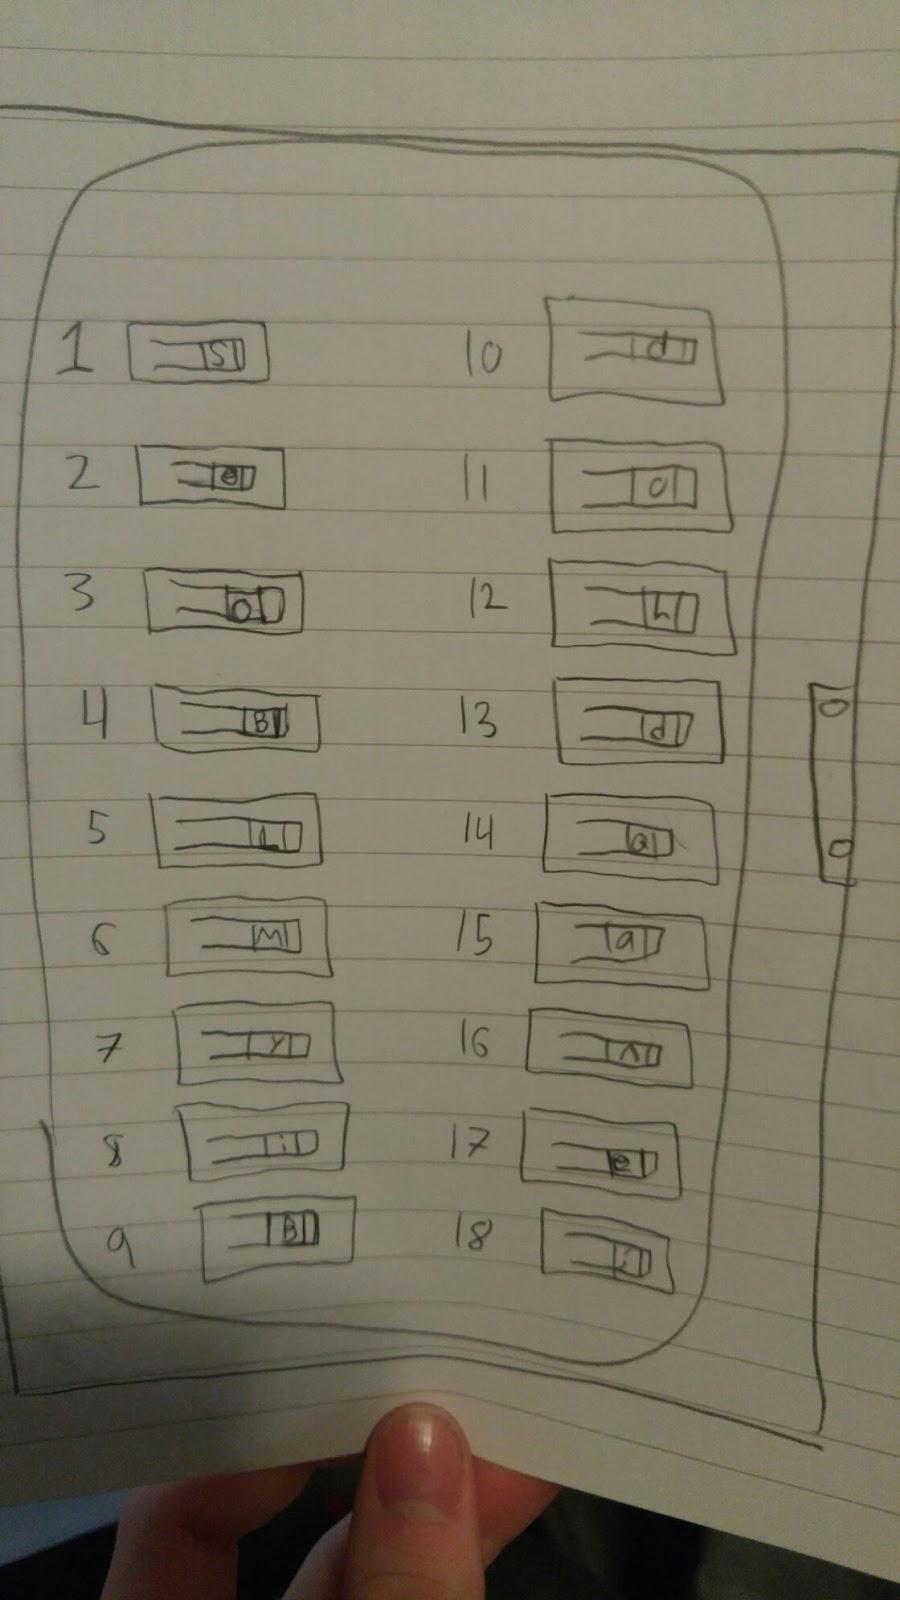 1 S
2 e
3 O
4 B
5 L
6 M
7 Y
8 i
9 B
10 d
11 O
12 h
13 d
14 a
15 a
16
17 e
18 i